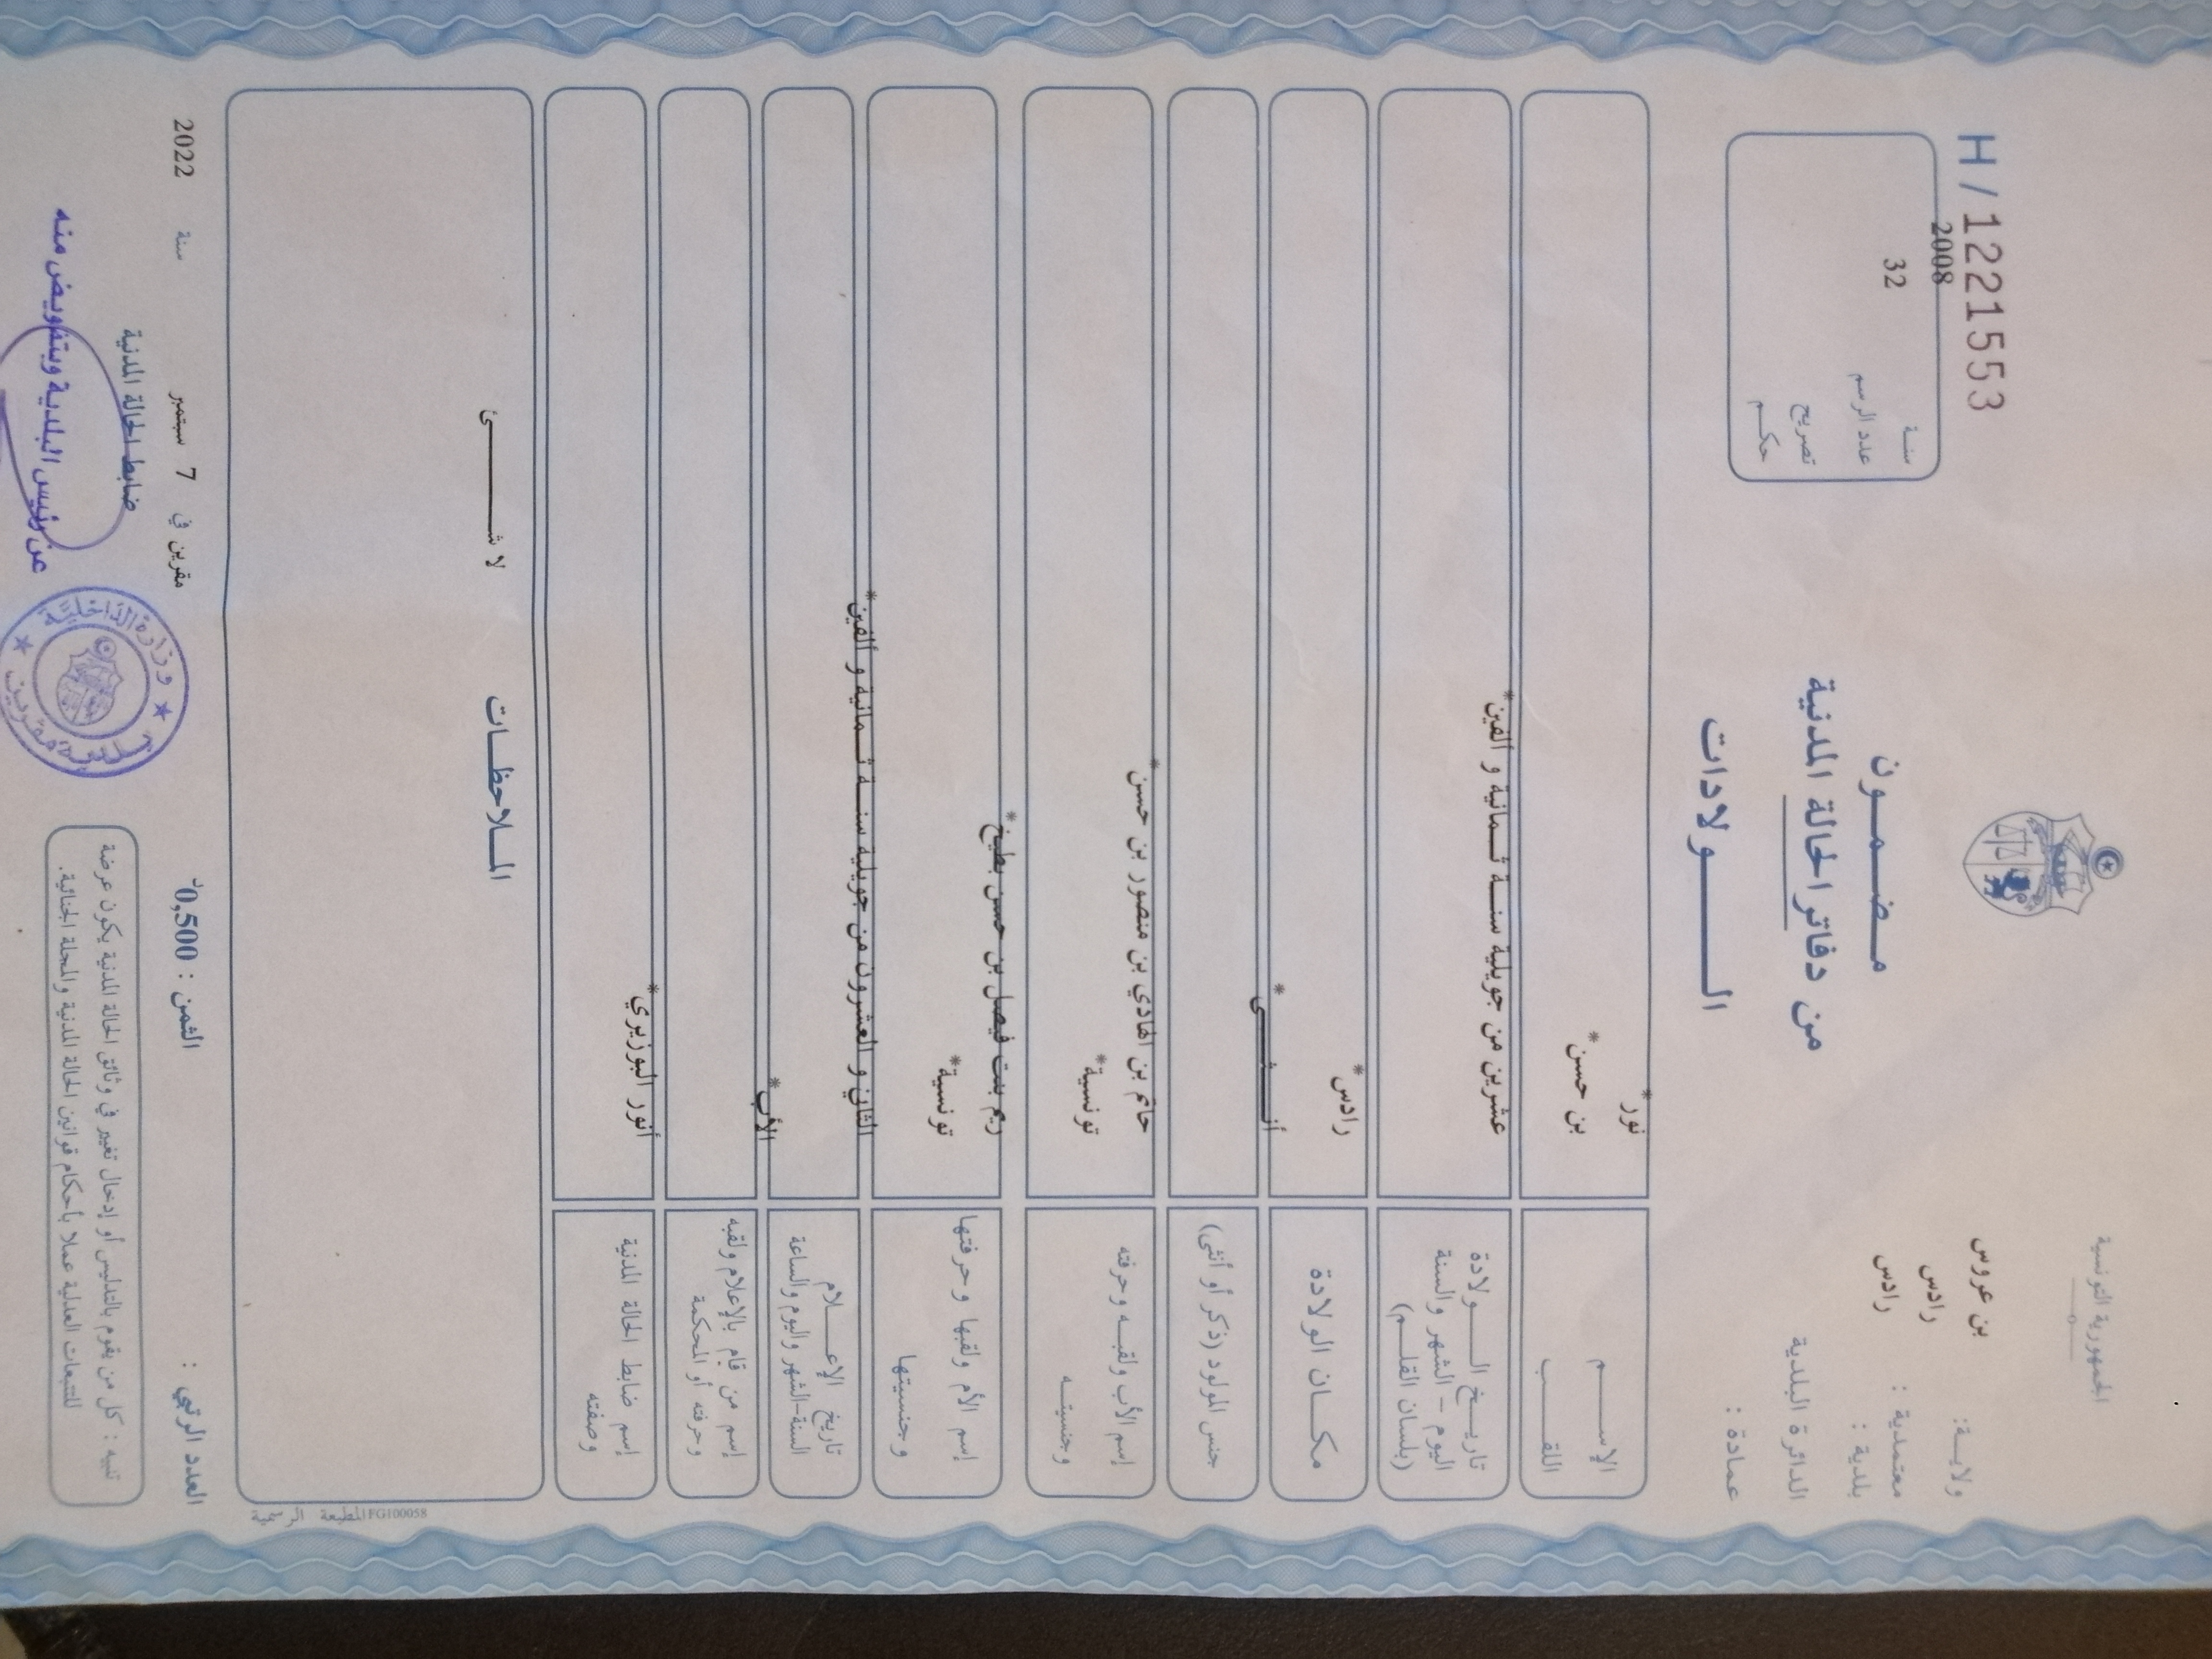 الجمهورية التونسية
ولايـة: بن عروس
معتمدية : رادس
بلدية : رادس
الدائرة البلدية
عمادة :
H / 1221553
سنـة 2008
عدد الرسم 32
تصريح
حكـم
مـضـمـون
من دفاتر الحالة المدنية
الـــولادات
الإســـم نور*
اللقـــب بن حسن*
تاريـخ الـــولادة
اليوم – الشهر والسنة
(بلسان القلـم)
عشرين من جويلية سنـة ثـمانية و الفين*
مكـان الولادة
رادس*
جنس المولود (ذكر أو أنثى)
أنـــثـــى*
إسم الأب ولقبـه وحرفته
وجنسيتـه
حاتم بن الهادي بن منصور بن حسن*
تونسية*
إسم الأم ولقبها وحرفتها
وجنسيتها
ريم بنت فيصل بن حسن بطيخ*
تونسية*
تاريخ الإعـــلام
السنة-الشهر واليوم والساعة
الثاني و العشرون من جويلية سنـة ثـمانية و ألفين*
إسم من قام بالإعلام ولقبه
وحرفته أو المحكمة
الأب*
إسم ضابط الحالة المدنية
وصفته
أنور البوزيري*
المـلاحظـات
لا شـــــئ
المطبعة الرسمية FG100058
العدد الرتبي :
الثمن : 0,500د
مقرين في 7 سبتمبر سنة 2022
ضابط الحالة المدنية
عن رئيس البلدية وبتفويض منه
وزارة الداخلية
بلدية مقرين
تنبيه : كل من يقوم بالتدليس أو إدخال تغيير في وثائق الحالة المدنية يكون عرضة
للتتبعات العدلية عملا بأحكام قوانين الحالة المدنية والمجلة الجنائية.